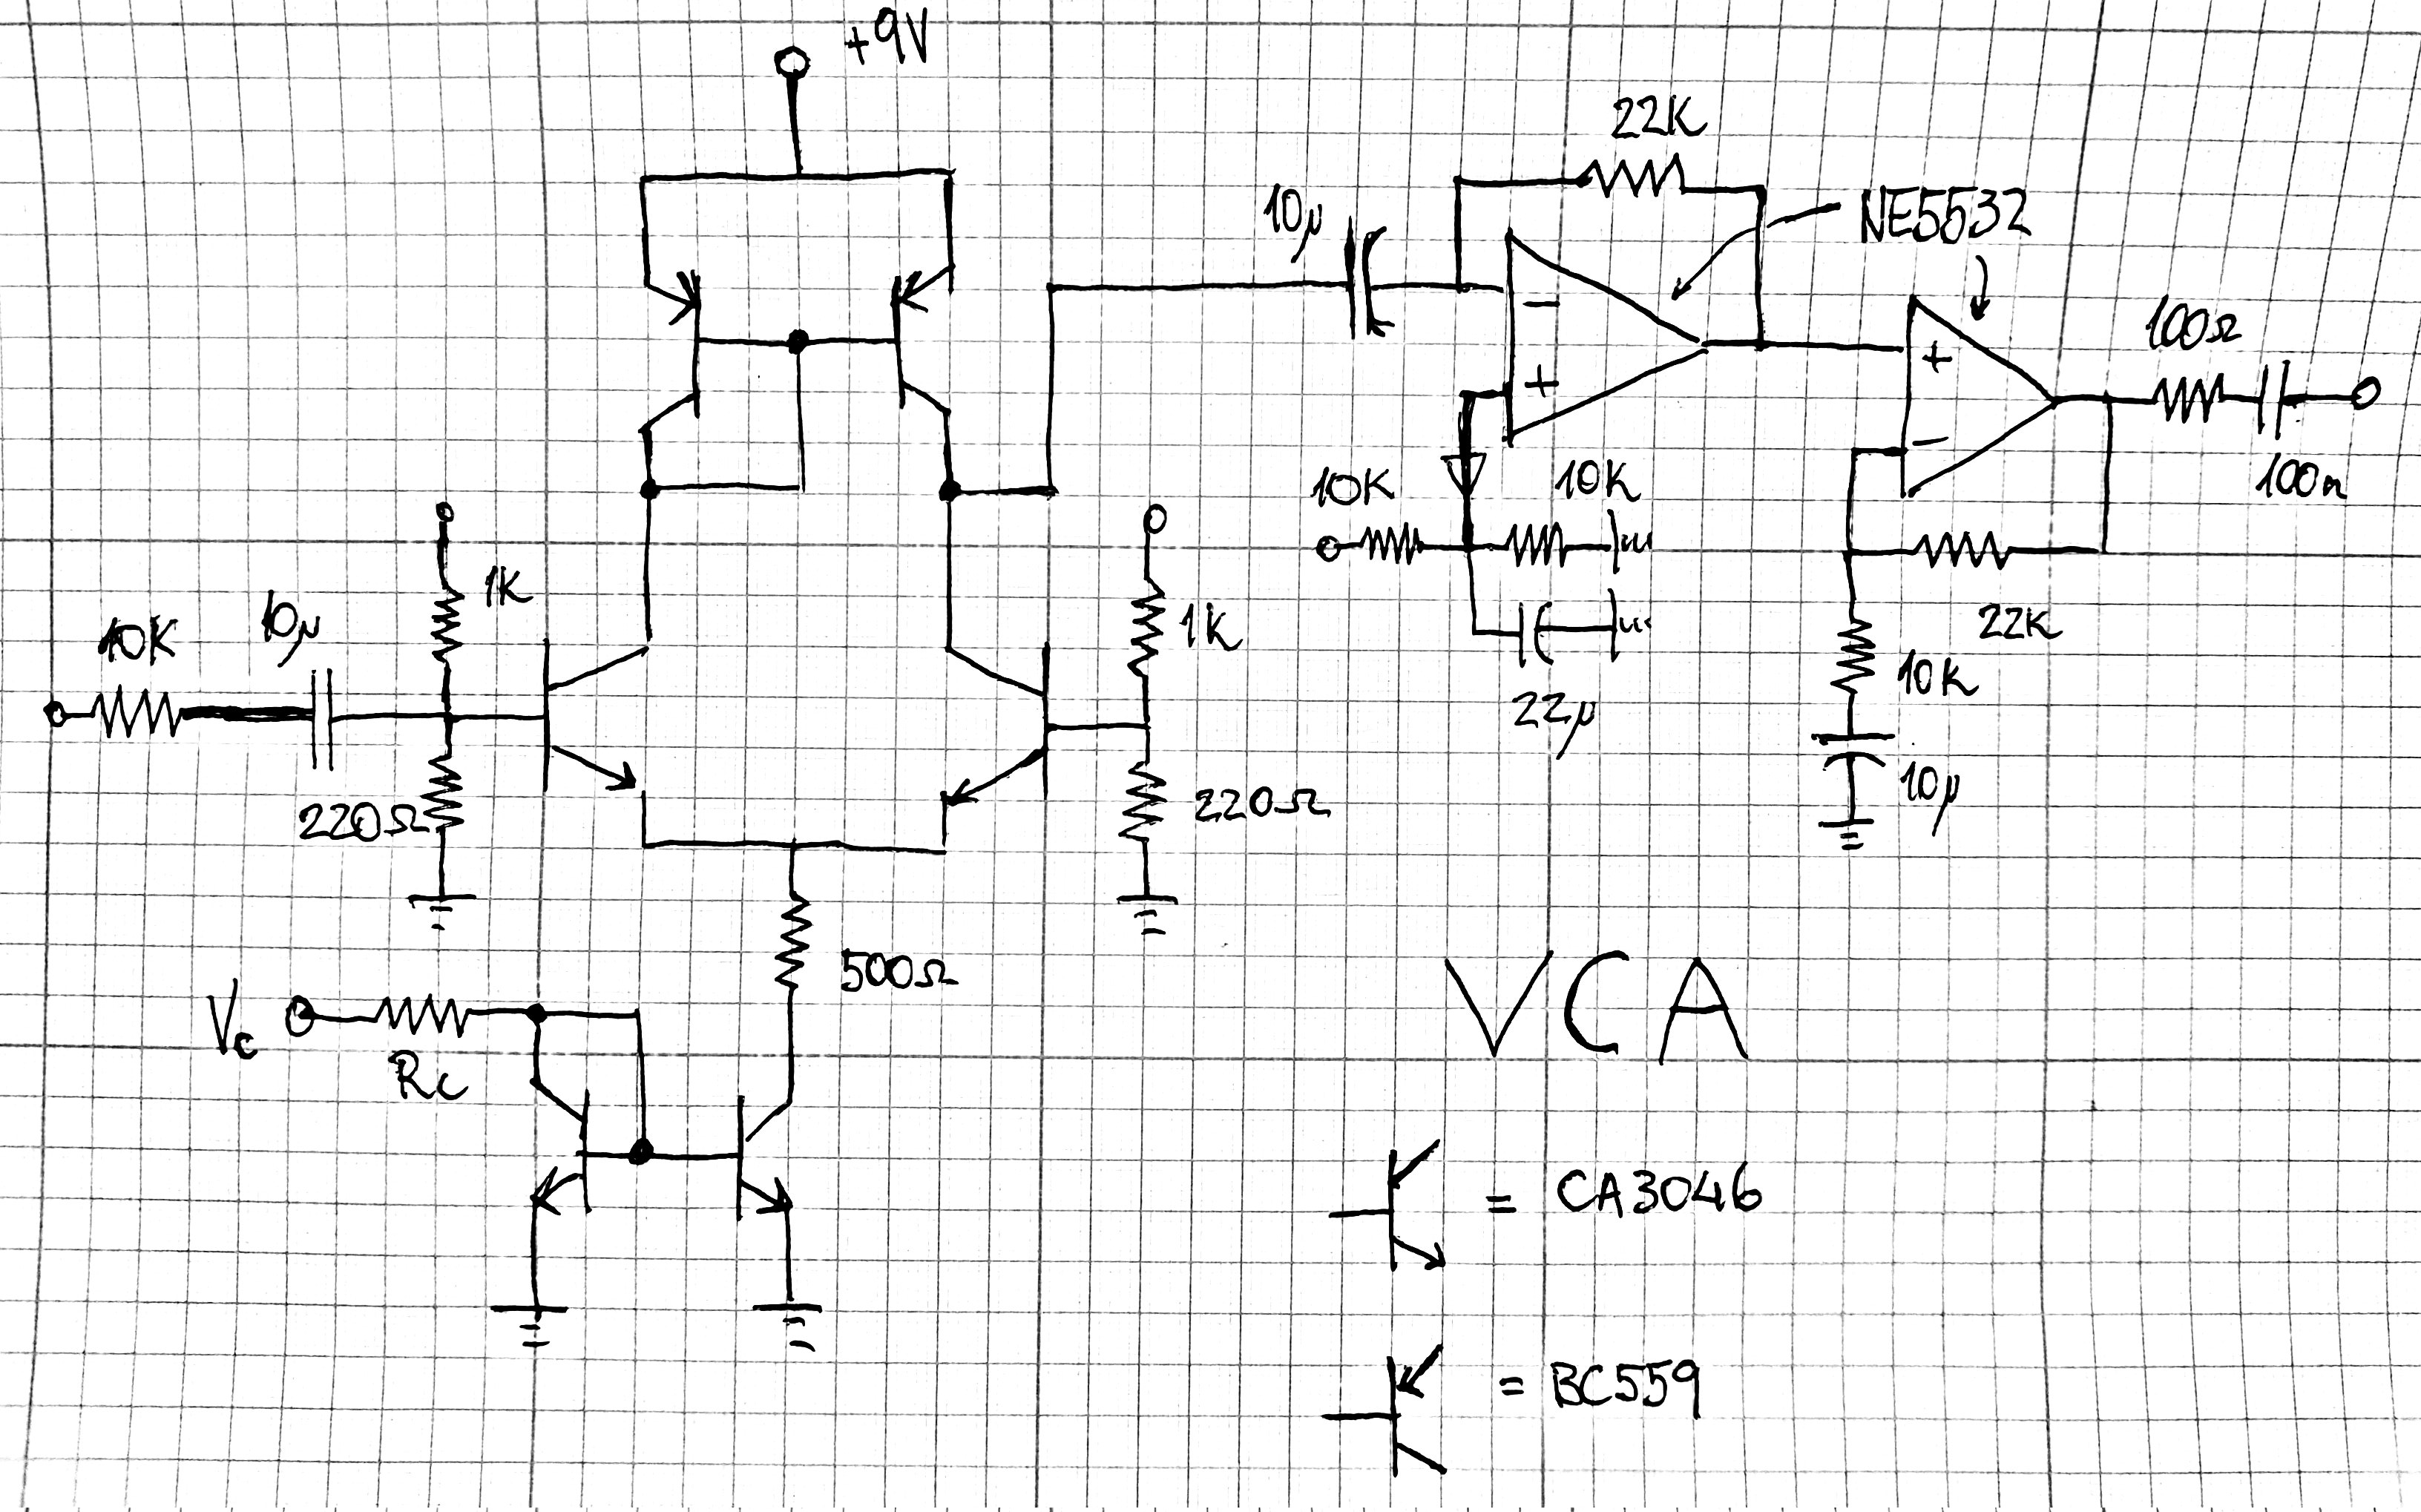 +9V
22K
10µ
NE5532
100Ω
10K
10K
100n
1K
1K
10K
10µ
22K
10K
22µ
10µ
220Ω
220Ω
500Ω
Vc
Rc
VCA
= CA3046
= BC559
−
+
+
−